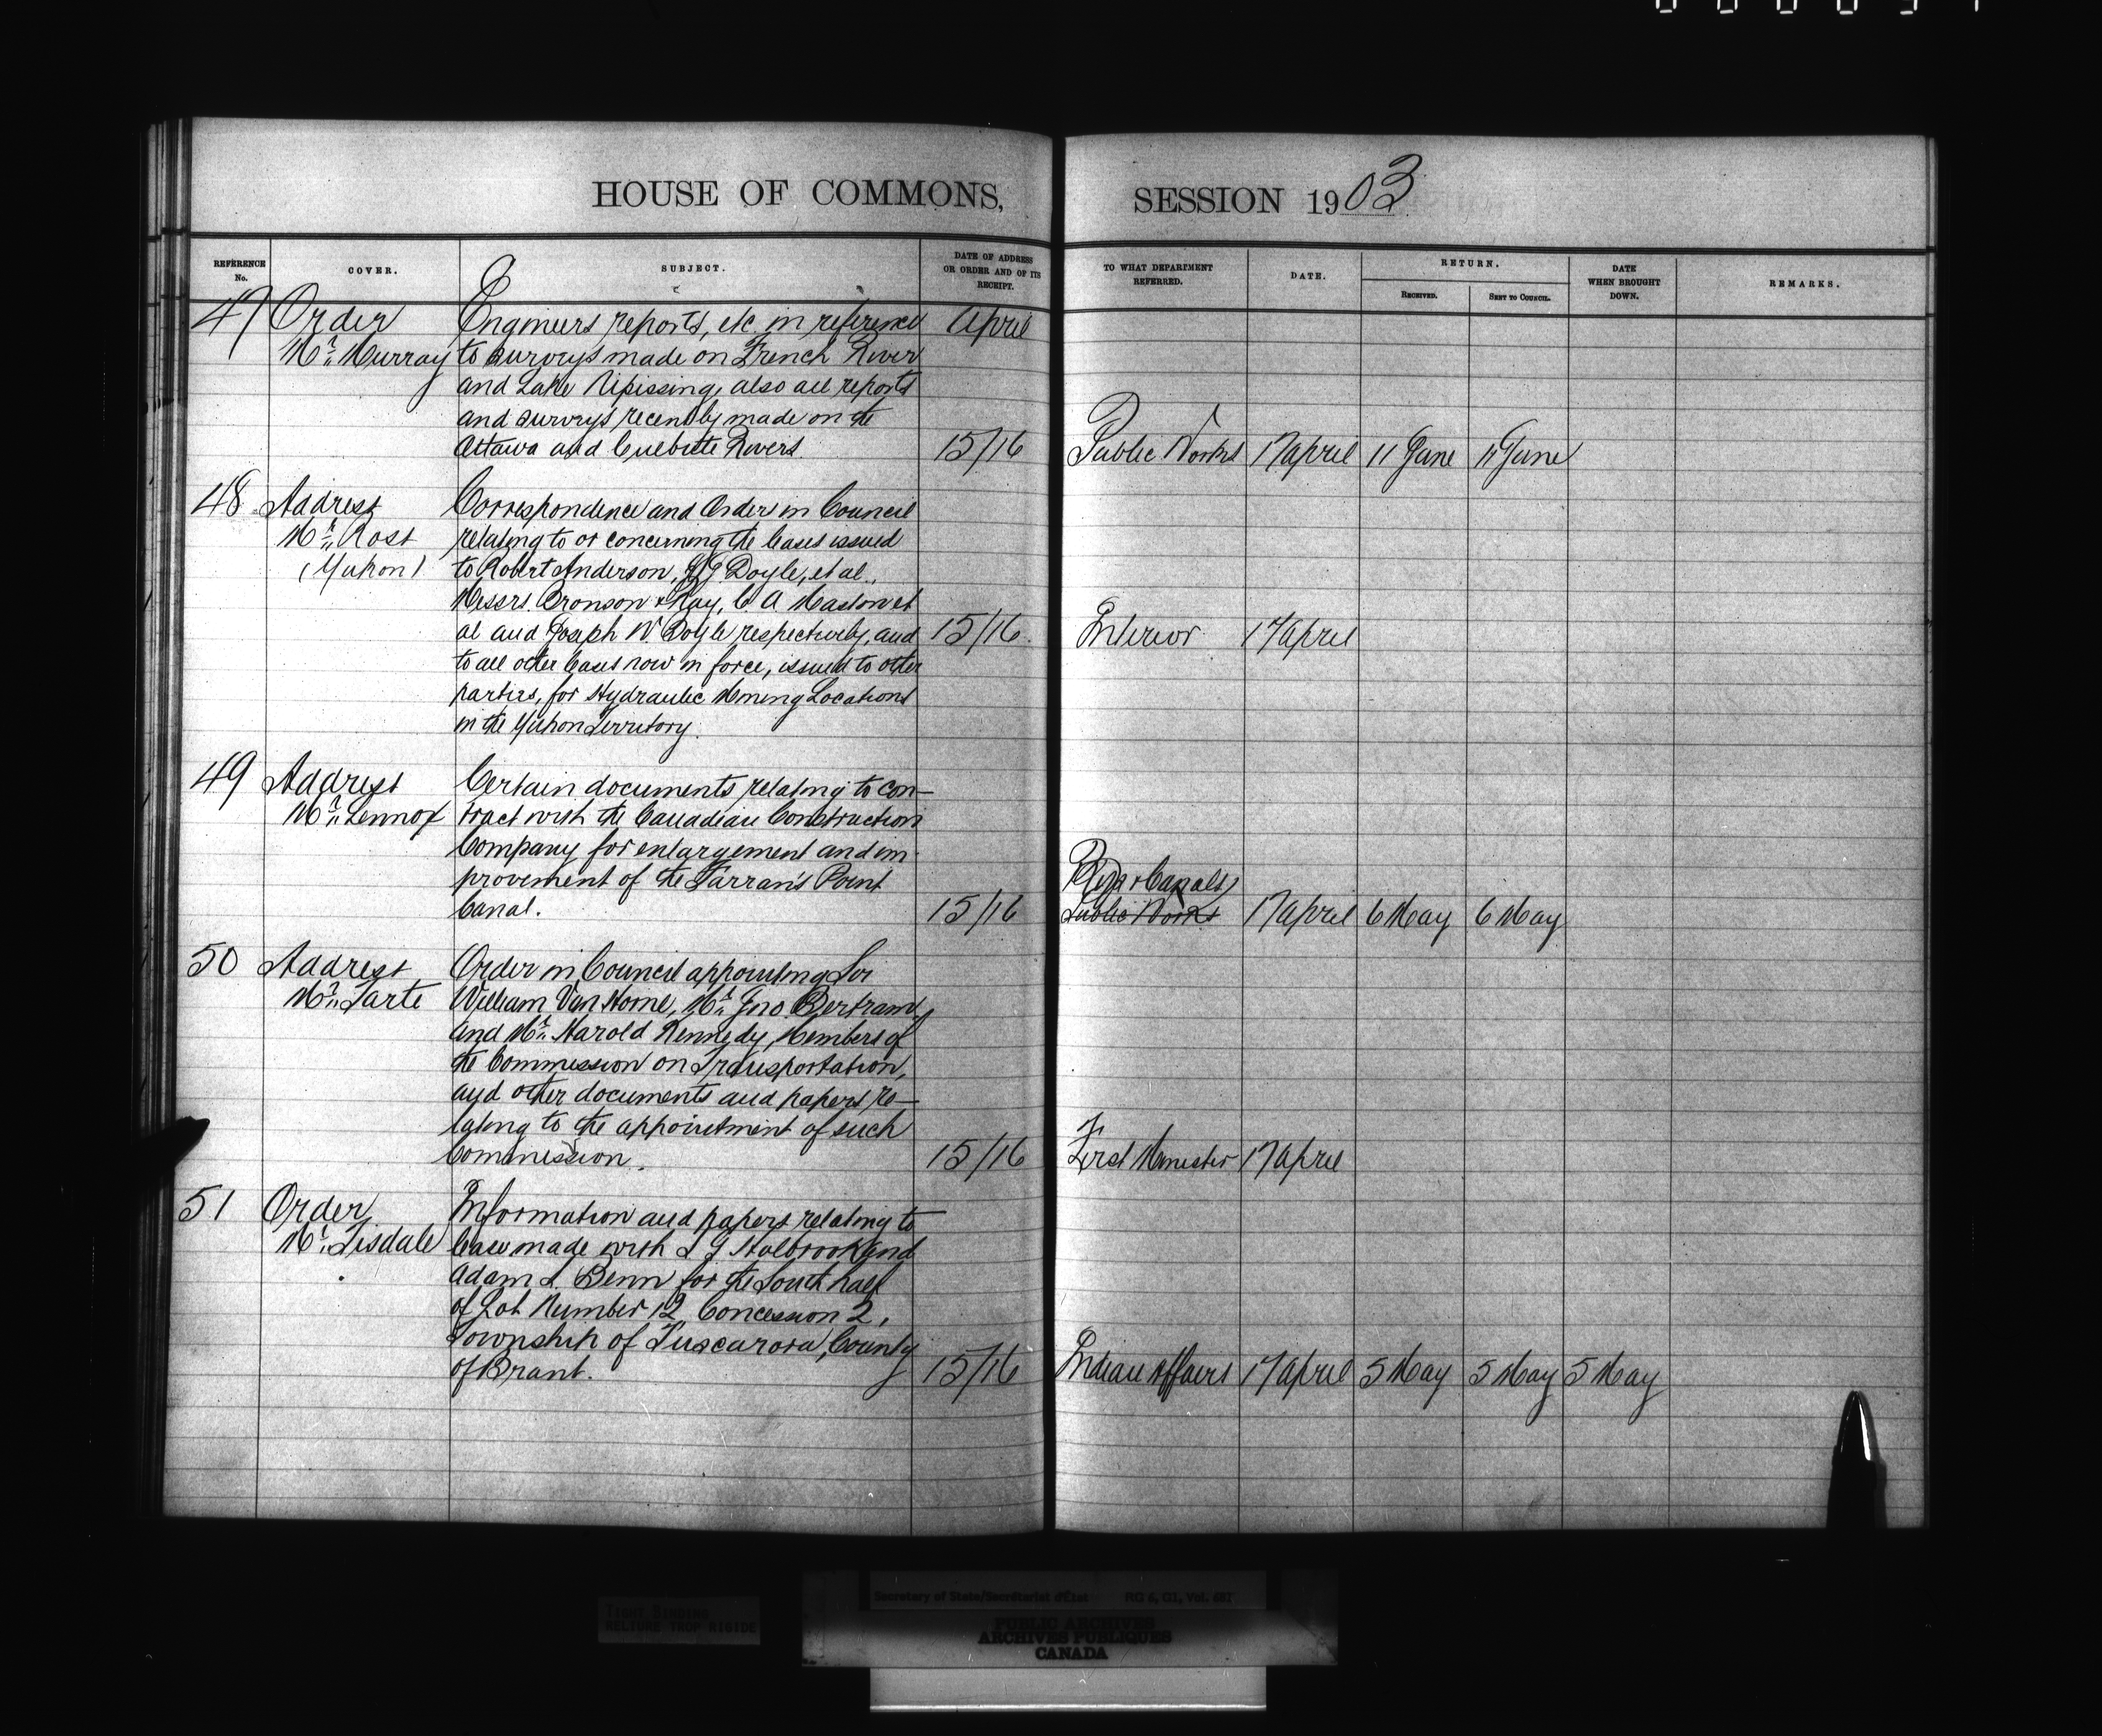 HOUSE OF COMMONS, SESSION 1903
REFERENCE No. COVER. SUBJECT. DATE OF ADDRESS OR ORDER AND OF ITS RECEIPT. TO WHAT DEPARTMENT REFERRED. DATE. RETURN. RECEIVED. SENT TO COUNCIL. DATE WHEN BROUGHT DOWN. REMARKS.
47 Order Engineers reports, etc. in reference April
Mr. Murray to surveys made on French River
and Lake Nipissing, also all reports
and surveys recently made on the
Ottawa and Culbute Rivers. 15/16 Public Works 17 April 11 June 11 June
48 Address Correspondence and Order in Council
Mr. Ross relating to or concerning the leases issued
(Yukon) to Robert Anderson, Doyle, et al.,
Messrs. Bronson & Ray, C. A. Maston et
al and Joseph W Doyle respectively, and 15/16. Interior 17 April
to all other leases now in force, issued to other
parties, for Hydraulic Mining Locations
in the Yukon Territory.
49 Address Certain documents relating to con-
Mr. Lennox tract with the Canadian Construction
Company for enlargement and im-
provement of the Farran's Point Rlys & Canals
Canal. 15/16 Public Works 17 April 6 May 6 May
50 Address Order in Council appointing Sir
Mr. Tarte William Van Horne, Mr. Jno. Bertram
and Mr. Harold Kennedy, Members of
the Commission on Transportation,
and other documents and papers re-
lating to the appointment of such
Commission. 15/16 First Minister 17 April
51 Order Information and papers relating to
Mr. Tisdale lease made with L J Holbrook and
Adam L. Benn for the South half
of Lot Number 12, Concession 2,
Township of Tuscarora, County
of Brant. 15/16 Indian Affairs 17 April 5 May 5 May 5 May
TIGHT BINDING
RELIURE TROP RIGIDE
Secretary of State/Secrétariat d'État RG 6,
PUBLIC ARCHIVES
ARCHIVES PUBLIQUES
CANADA